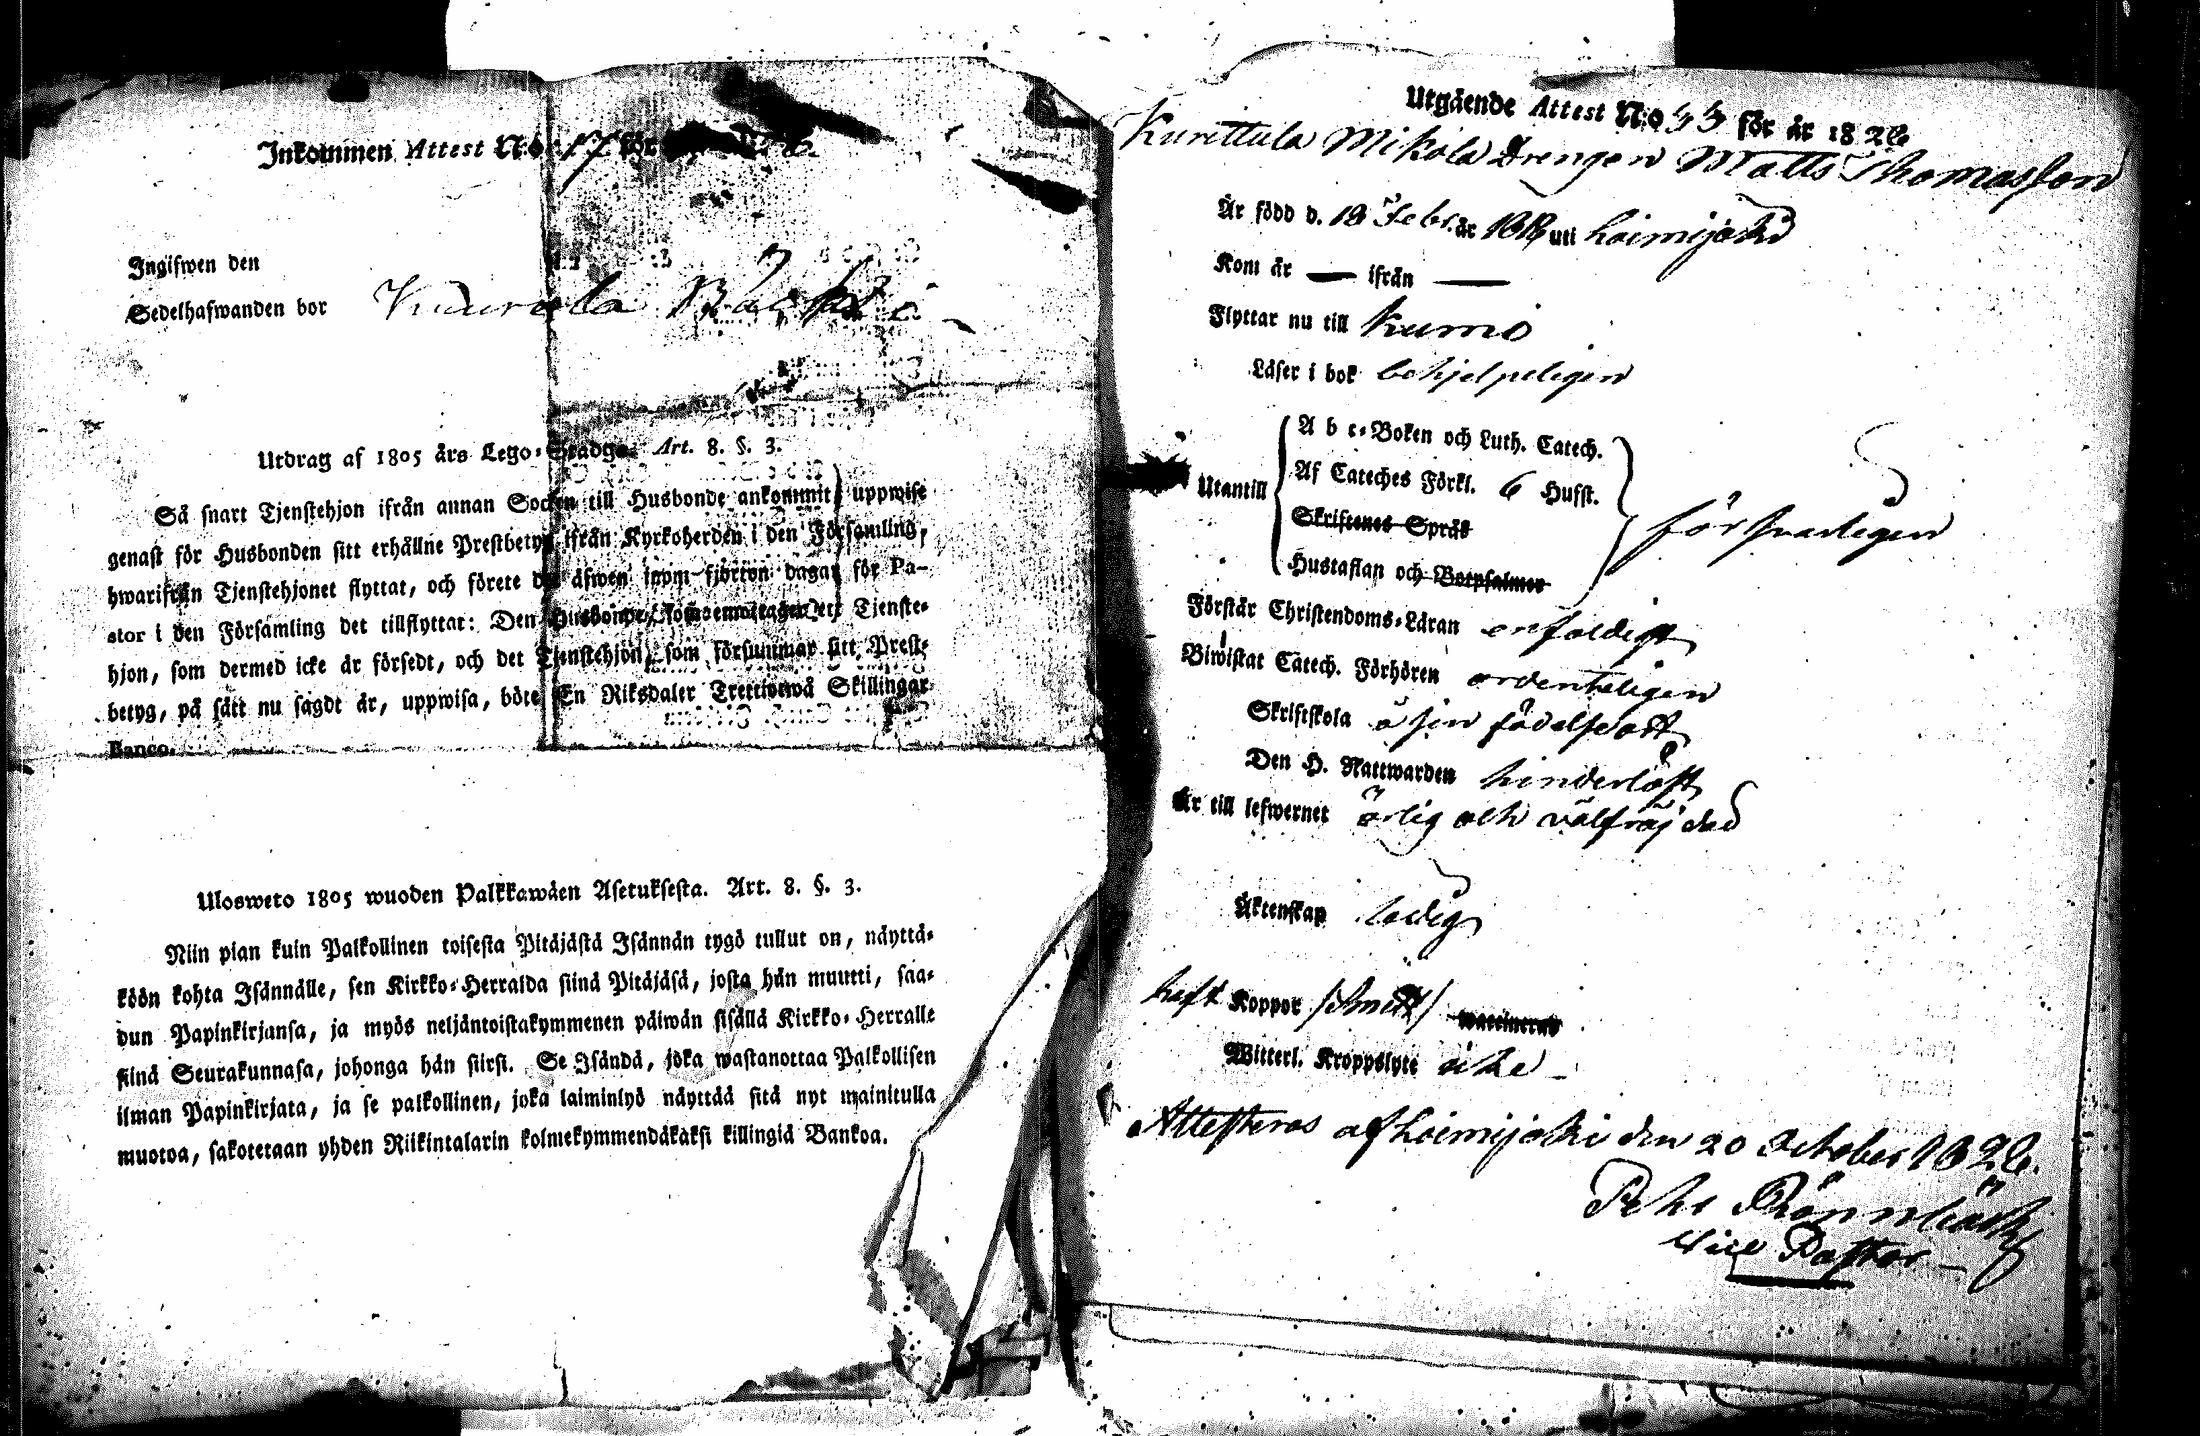 Inkommen Attest N:o 17 för
Ingifwen den
Sedelhafwanden bor
Utdrag af 1805 års Lego-Stadga. Art. 8. §. 3.
Så snart Tjenstehjon ifrån annan Socken till Husbonde ankommit, uppwise
genast för Husbonden sitt erhållne Prestbetyg ifrån Kyrkoherden i den Församling,
hwarifrån Tjenstehjonet flyttat, och förete det äfwen inom fjorton dagar för Pa-
stor i den Församling det tillflyttat: Den Husbonde, som emottager ett Tjenste-
hjon, som dermed icke är försedt, och det Tjenstehjon, som försummar sitt Prest-
betyg, på sätt nu sagdt är, uppwisa, böte En Riksdaler Trettiotwå Skillingar
Banco.
Ulosweto 1805 wuoden Palkkawäen Asetuksesta. Art. 8. §. 3.
Niin pian kuin Palkollinen toisesta Pitäjästä Isännän tygö tullut on, näyttä-
köön kohta Isännälle, sen Kirkko-Herralda siinä Pitäjäsä, josta hän muutti, saa-
dun Papinkirjansa, ja myös neljäntoistakymmenen päiwän sisällä Kirkko-Herralle
siinä Seurakunnasa, johonga hän siirsi. Se Isändä, joka wastanottaa Palkollisen
ilman Papinkirjata, ja se palkollinen, joka laiminlyö näyttää sitä nyt mainitulla
muotoa, sakotetaan yhden Riikintalarin kolmekymmendäkaksi killingiä Bankoa.
Utgående Attest N:o 53 för år 1826
Kurittula Mikola Drengen Matts Thomasson
Är född d. 18 Febr. år uti Loimijoki
Kom år — ifrån —
Flyttar nu till Kumo
Läser i bok behjelpeligen
Utantill
A b c-Boken och Luth. Catech.
Af Cateches Förkl. 6 Hufst.
Skriftenes Språk
Hustaflan och Botpsalmer
försvarligen
Förstår Christendoms-Läran enfaldigt
Biwistat Catech. Förhören ordenteligen
Skriftskola å sin födelseort
Den H. Nattwarden hinderlöst
Är till lefwernet ärlig och välfräjdad
Äktenskap ledig
haft Koppor /smitt/ waccinerad
Witterl. Kroppslyte icke
Attesteras af Loimijoki den 20 October 1826.
Pehr Rönnbäck
Vice Pastor